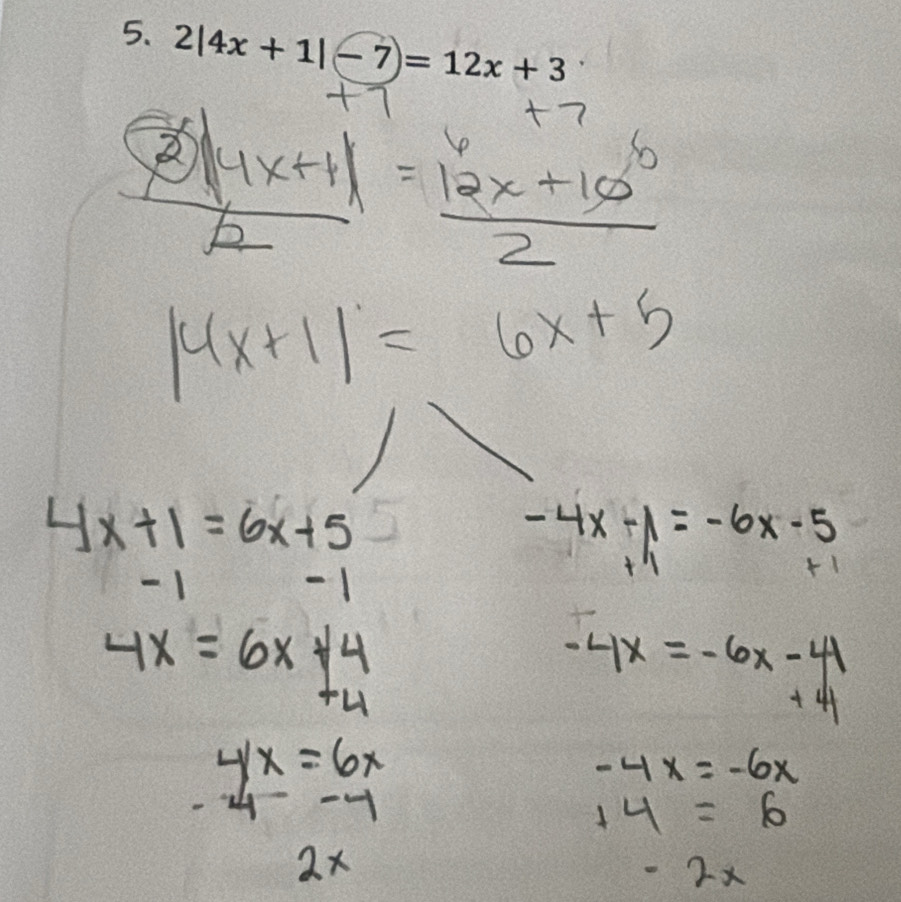 5. 2|4x + 1| − 7 = 12x + 3
+7 +7
6 5
2|4x+1| = 12x + 10
2 2
|4x+1| = 6x + 5
4x+1 = 6x+5 -4x-1 = -6x-5
-1 -1 +1 +1
4x = 6x+4 -4x = -6x-4
+4 +4
4x = 6x -4x = -6x
-4 -4 +4 = 6
2x -2x